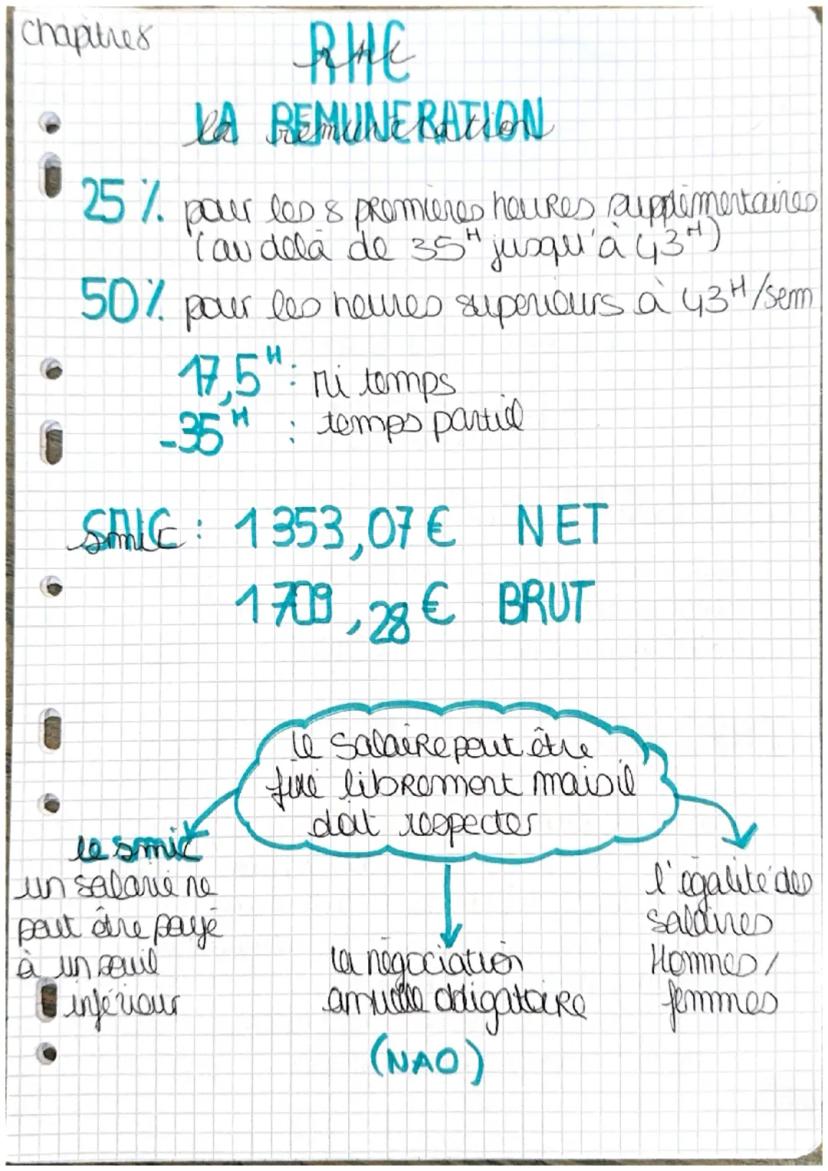 chapitre 8
RHC
rhc
LA REMUNERATION
la rémunération
25% pour les 8 premières heures supplémentaires
(au delà de 35H jusqu'à 43H)
50% pour les heures superieurs à 43H/sem
17,5H : mi temps
-35H : temps partiel
SMIC : 1353,07€ NET
smic
1709,28€ BRUT
le salaire peut être
fixé librement mais il
doit respecter
le smic
un salarié ne
peut être payé
à un seuil
inférieur
la négociation
annuelle obligatoire
(NAO)
l'égalité des
salaires
Hommes/
femmes